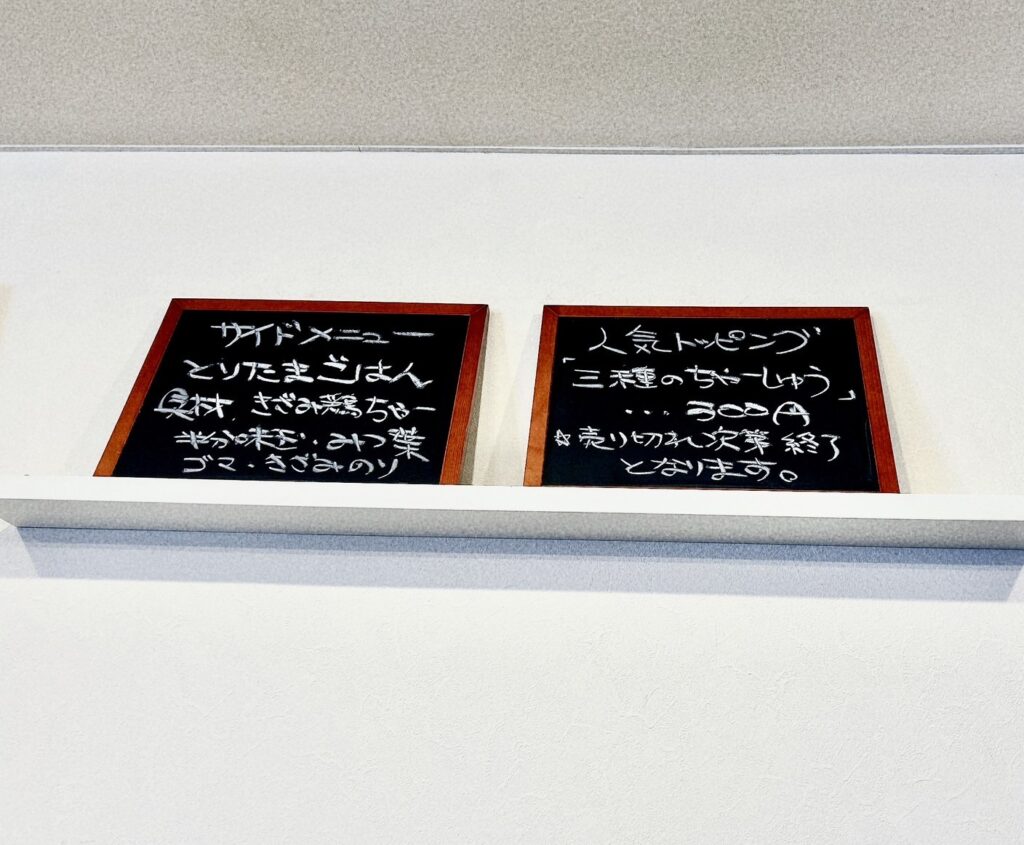 サイドメニュー
とりたまごはん
具材、きざみ鶏ちゃー
半分味玉・みつ葉
ゴマ・きざみのり
人気トッピング
「三種のちゃーしゅう」
・・・300円
※売り切れ次第終了
となります。